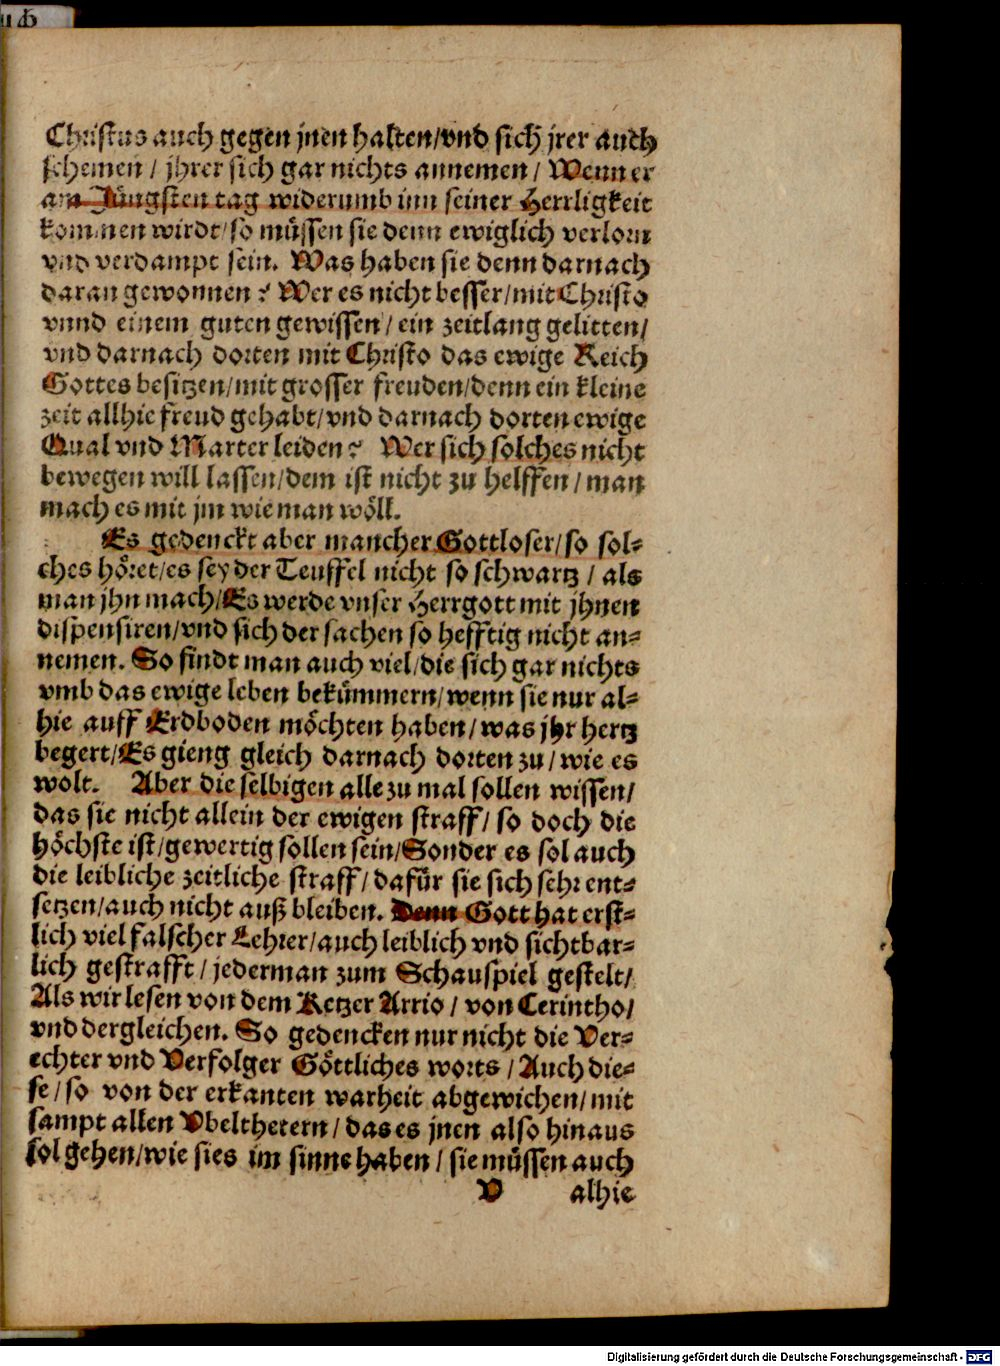 Christus auch gegen jnen halten/vnd sich jrer auch
schemen / jhrer sich gar nichts annemen / Wenn er
am Jüngsten tag widerumb inn seiner Herrligkeit
kommen wirdt/so müssen sie denn ewiglich verlorn
vnd verdampt sein. Was haben sie denn darnach
daran gewonnen? Wer es nicht besser/mit Christo
vnnd einem guten gewissen/ein zeitlang gelitten/
vnd darnach dorten mit Christo das ewige Reich
Gottes besitzen/mit grosser freuden/denn ein kleine
zeit allhie freud gehabt/vnd darnach dorten ewige
Qual vnd Marter leiden? Wer sich solches nicht
bewegen will lassen/dem ist nicht zu helffen/man
mach es mit jm wie man wöll.
Es gedenckt aber mancher Gottloser/so sol-
ches höret/es sey der Teuffel nicht so schwartz / als
man jhn mach/Es werde vnser Herrgott mit jhnen
dispensiren/vnd sich der sachen so hefftig nicht an-
nemen. So findt man auch viel/die sich gar nichts
vmb das ewige leben bekümmern/wenn sie nur al-
hie auff Erdboden möchten haben/was jhr hertz
begert/Es gieng gleich darnach dorten zu/wie es
wolt. Aber die selbigen alle zu mal sollen wissen/
das sie nicht allein der ewigen straff/so doch die
höchste ist/gewertig sollen sein/Sonder es sol auch
die leibliche zeitliche straff/dafür sie sich sehr ent-
setzen/auch nicht auß bleiben. Denn Gott hat erst-
lich viel falscher Lehrer/auch leiblich vnd sichtbar-
lich gestrafft/jederman zum Schauspiel gestelt/
Als wir lesen von dem Ketzer Arrio / von Cerintho/
vnd dergleichen. So gedencken nur nicht die Ver-
echter vnd Verfolger Göttliches worts / Auch die-
se/so von der erkanten warheit abgewichen/mit
sampt allen Vbelthetern/das es jnen also hinaus
sol gehen/wie sies im sinne haben / sie müssen auch
V alhie
Digitalisierung gefördert durch die Deutsche Forschungsgemeinschaft - DFG